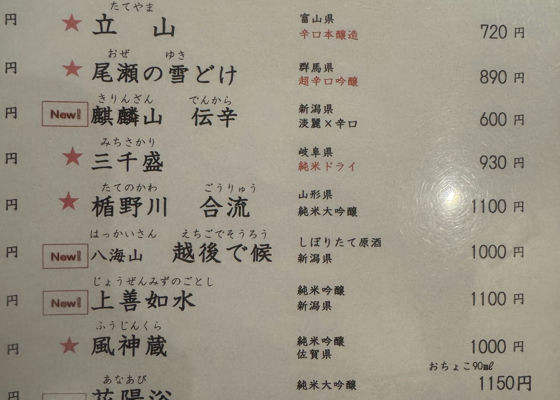 たてやま
円 ★ 立山 富山県 720円
辛口本醸造
おぜ ゆき
円 ★ 尾瀬の雪どけ 群馬県 890円
超辛口吟醸
きりんざん でんから
円 New! 麒麟山 伝辛 新潟県 600円
淡麗×辛口
みちさかり
円 ★ 三千盛 岐阜県 930円
純米ドライ
たてのかわ ごうりゅう
円 ★ 楯野川 合流 山形県 1100円
純米大吟醸
はっかいさん えちごでそうろう
円 New! 八海山 越後で候 しぼりたて原酒 1000円
新潟県
じょうぜんみずのごとし
円 New! 上善如水 純米吟醸 1100円
新潟県
ふうじんくら
円 ★ 風神蔵 純米吟醸 1000円
佐賀県
おちょこ90㎖
あなあび
円 純米大吟醸 1150円